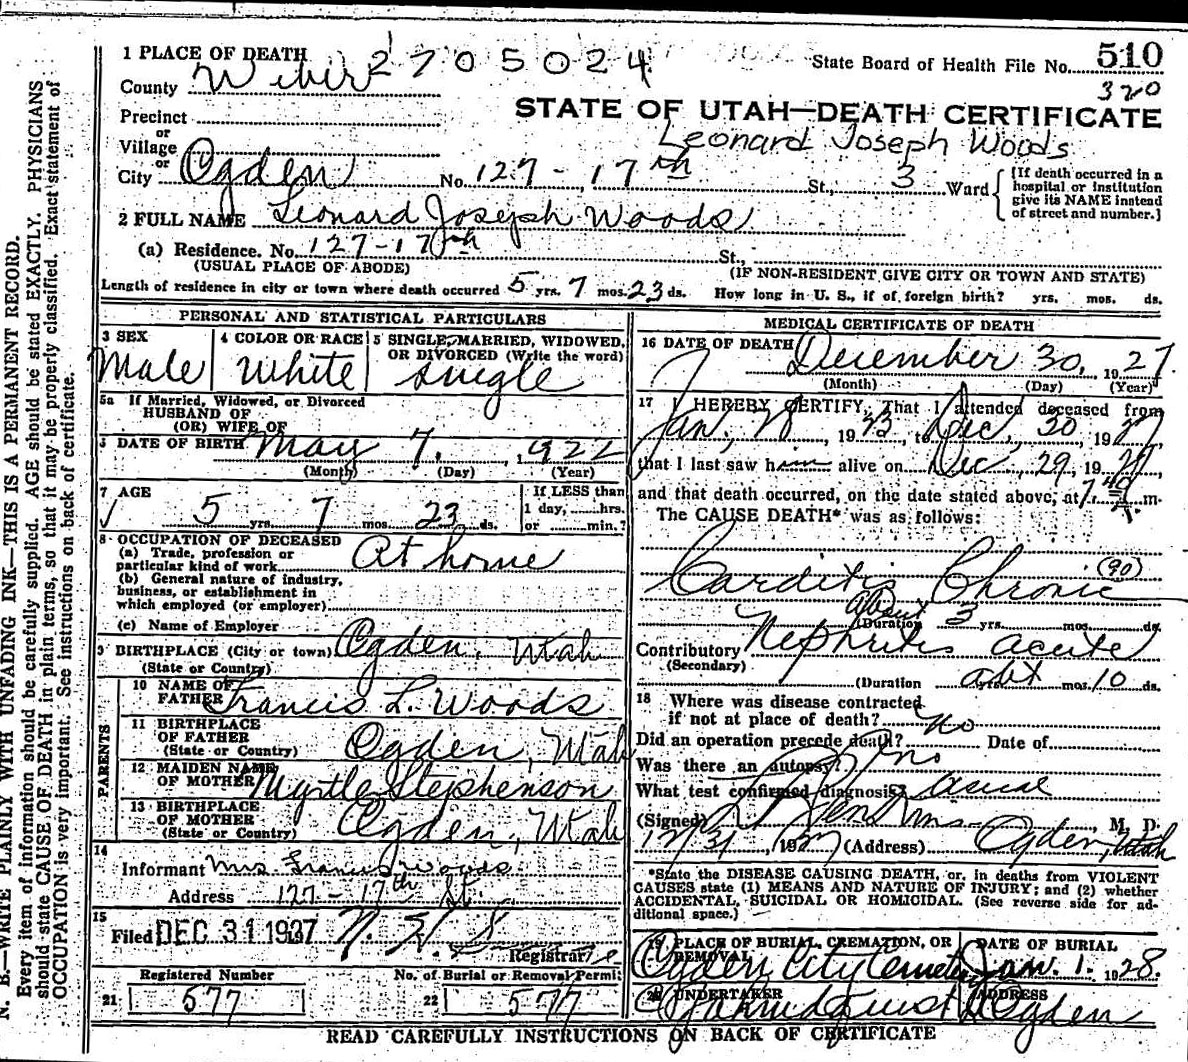 1 PLACE OF DEATH 2705024 State Board of Health File No. 510
County Weber 320
STATE OF UTAH—DEATH CERTIFICATE
Precinct
or
Village Leonard Joseph Woods
or
City Ogden No. 127-17th St., 3 Ward
[If death occurred in a hospital or institution give its NAME instead of street and number.]
2 FULL NAME Leonard Joseph Woods
(a) Residence. No. 127-17th St.,
(USUAL PLACE OF ABODE) (IF NON-RESIDENT GIVE CITY OR TOWN AND STATE)
Length of residence in city or town where death occurred 5 yrs. 7 mos. 23 ds. How long in U. S., if of foreign birth? yrs. mos. ds.
PERSONAL AND STATISTICAL PARTICULARS
3 SEX Male
4 COLOR OR RACE White
5 SINGLE, MARRIED, WIDOWED, OR DIVORCED (Write the word) Single
5a If Married, Widowed, or Divorced
HUSBAND OF
(OR) WIFE OF
DATE OF BIRTH May 7, 1922
(Month) (Day) (Year)
7 AGE
5 yrs. 7 mos. 23 ds.
If LESS than 1 day, hrs. or min.?
8 OCCUPATION OF DECEASED
(a) Trade, profession or particular kind of work At home
(b) General nature of industry, business, or establishment in which employed (or employer)
(c) Name of Employer
9 BIRTHPLACE (City or town) Ogden, Utah
(State or Country)
PARENTS
10 NAME OF FATHER Francis L. Woods
11 BIRTHPLACE OF FATHER Ogden, Utah
(State or Country)
12 MAIDEN NAME OF MOTHER Myrtle Stephenson
13 BIRTHPLACE OF MOTHER Ogden, Utah
(State or Country)
14
Informant Mrs. Francis Woods
Address 127-17th St.
15
Filed DEC 31 1927
Registrar
Registered Number No. of Burial or Removal Permit
21 577 22 577
MEDICAL CERTIFICATE OF DEATH
16 DATE OF DEATH December 30, 1927
(Month) (Day) (Year)
17 I HEREBY CERTIFY, That I attended deceased from
Jan, 19 to Dec, 30 1927,
that I last saw him alive on Dec 29, 1927
and that death occurred, on the date stated above, at m.
The CAUSE DEATH* was as follows:
Carditis Chronic (90)
(Duration about 3 yrs. mos. ds.
Contributory Nephritis acute
(Secondary)
(Duration abt yrs. mos. 10 ds.
18 Where was disease contracted
if not at place of death? no
Did an operation precede death? Date of
Was there an autopsy? no
What test confirmed diagnosis? usual
(Signed) M. D.
12/31, 1927 (Address) Ogden, Utah
*State the DISEASE CAUSING DEATH, or, in deaths from VIOLENT
CAUSES state (1) MEANS AND NATURE OF INJURY; and (2) whether
ACCIDENTAL, SUICIDAL OR HOMICIDAL. (See reverse side for additional space.)
19 PLACE OF BURIAL, CREMATION, OR REMOVAL Ogden City Cemetery
DATE OF BURIAL Jan. 1. 1928.
20 UNDERTAKER
ADDRESS Ogden
READ CAREFULLY INSTRUCTIONS ON BACK OF CERTIFICATE
N. B.—WRITE PLAINLY WITH UNFADING INK—THIS IS A PERMANENT RECORD.
Every item of information should be carefully supplied. AGE should be stated EXACTLY. PHYSICIANS
should state CAUSE OF DEATH in plain terms, so that it may be properly classified. Exact statement of
OCCUPATION is very important. See instructions on back of certificate.